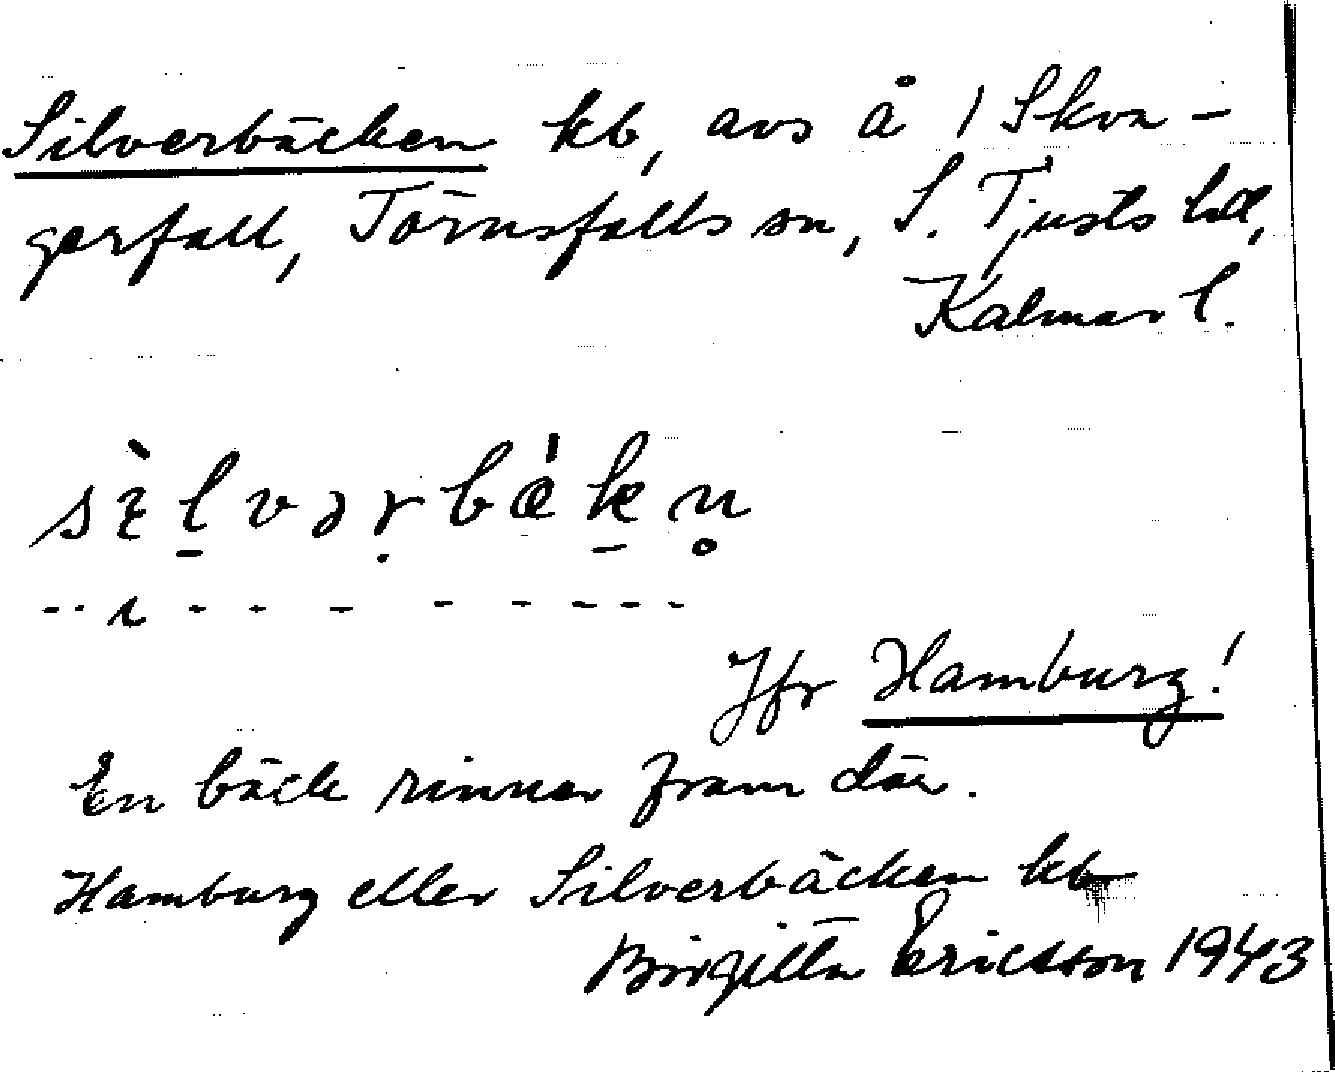 Silverbäcken kb, avs å i Skva-
gerfall, Törnsfalls sn, S. Tjusts hd,
Kalmar l.
sìlvərbäkn̥
-- ɩ - - - - - - - -
Jfr Hamburg!
En bäck rinner fram där.
Hamburg eller Silverbäcken kb
Birgitta Ericsson 1943